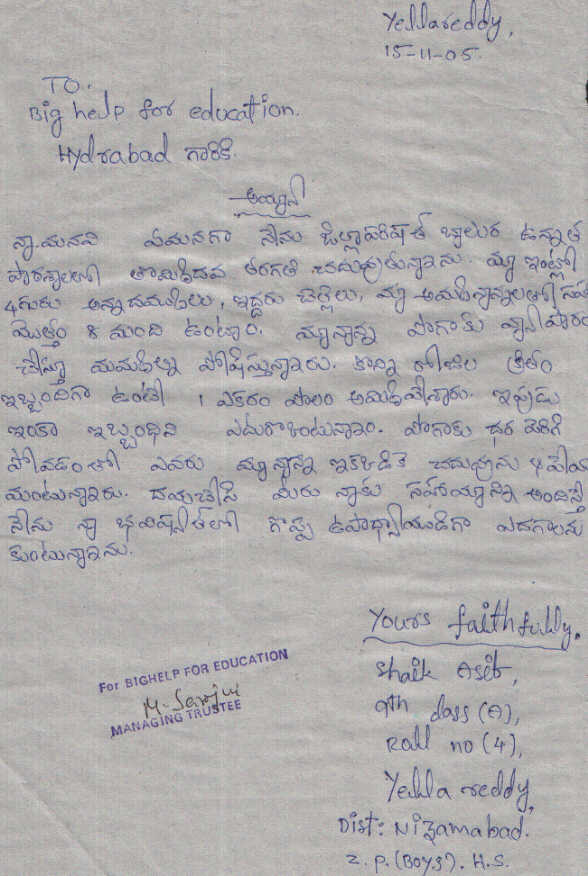 Yellareddy,
15-11-05.
TO.
Big help for education.
Hydrabad గారికి.
అయ్యా
నా మనవి ఏమనగా నేను జిల్లాపరిషత్ బాలుర ఉన్నత
పాఠశాలలో తొమ్మిదవ తరగతి చదువుతున్నాను. మా ఇంట్లో
4గురు అన్నదమ్ములు, ఇద్దరు చెల్లెలు, మా అమ్మనాన్నలతో
మొత్తం 8 మంది ఉంటాం. మా నాన్న పొగాకు వ్యాపారం
చేస్తూ మమ్మల్ని పోషిస్తున్నారు. కొన్ని రోజుల క్రితం
ఇబ్బందిగా ఉంటే 1 ఎకరం పొలం అమ్మివేశారు. ఇప్పుడు
ఇంకా ఇబ్బంధిని ఎదుర్కొంటున్నాం. పొగాకు ధర పెరిగి
పోవడంతో ఎవరు మా నాన్న ఇక్కడితే చదువును
మంటున్నారు. దయచేసి మీరు నాకు సహాయాన్ని అందిస్తే
నేను నా భవిష్యత్‌లో గొప్ప ఉపాధ్యాయుడిగా ఎదగాలను
కుంటున్నాను.
Yours faithfully,
Shaik Asib,
9th class (A),
Roll no (4),
Yella reddy,
Dist: Nizamabad.
Z.P.(Boys). H.S.
For BIGHELP FOR EDUCATION
MANAGING TRUSTEE